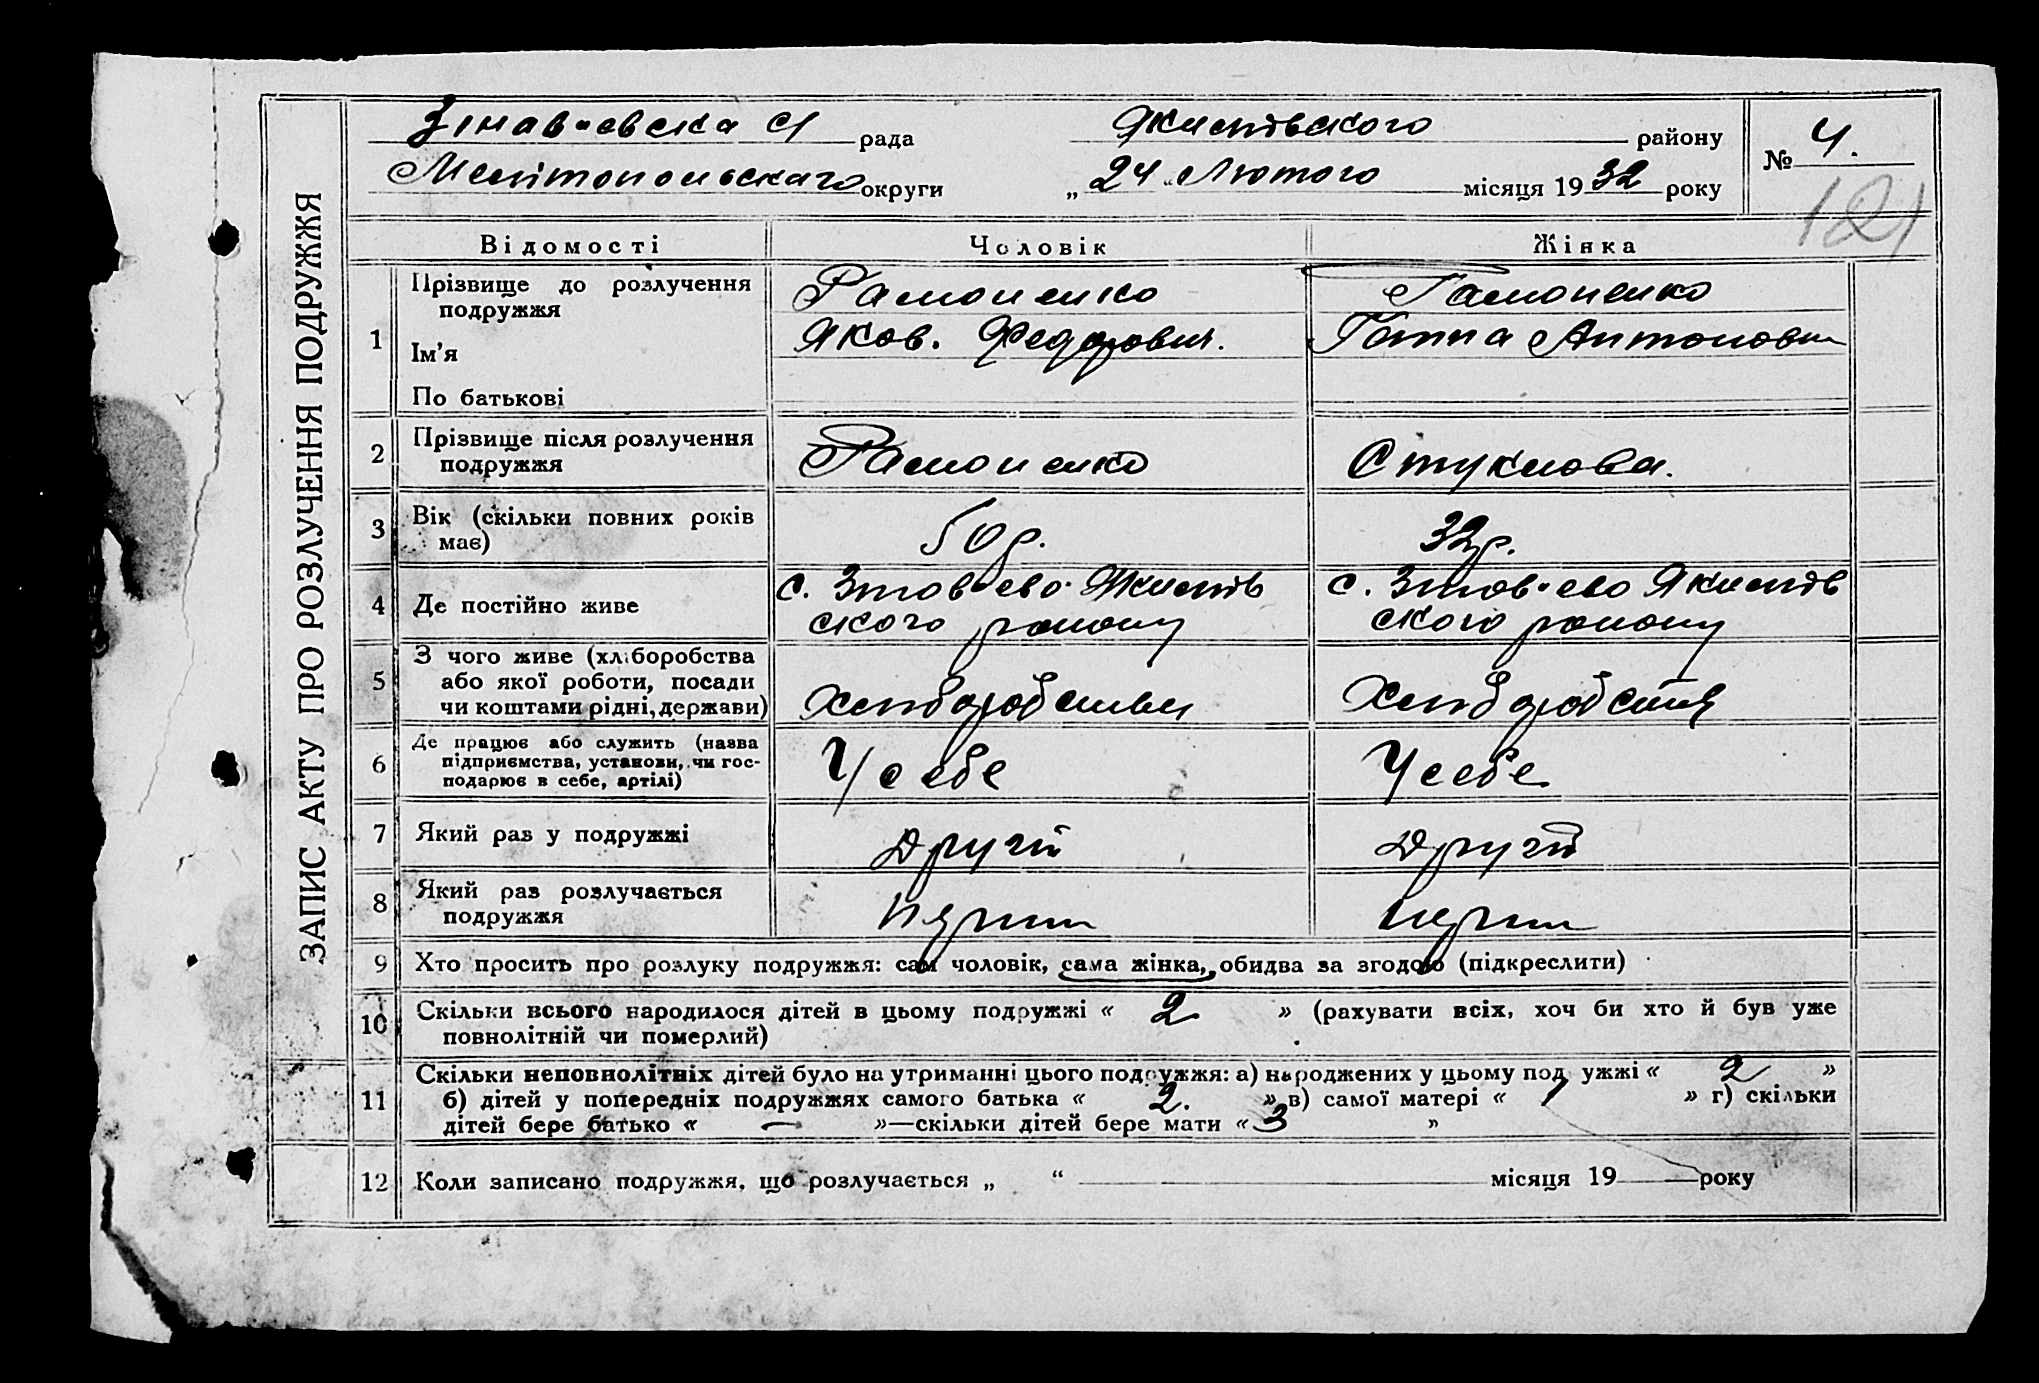 ЗАПИС АКТУ ПРО РОЗЛУЧЕННЯ ПОДРУЖЖЯ
рада
району
№ 4.
округи
„ 24 “ Лютого місяця 1932 року
121
Відомості Чоловік Жінка
1 Прізвище до розлучення
подружжя
Ім’я
Яков. Федорович. Ганна Антоновн
По батькові
2 Прізвище після розлучення
подружжя
3 Вік (скільки повних років
має)
50 р. 32 р.
4 Де постійно живе
с. с.
ского району ского району
5 З чого живе (хліборобства
або якої роботи, посади
чи коштами рідні, держави)
6 Де працює або служить (назва
підприємства, установи, чи гос-
подарює в себе, артілі)
У себе У себе
7 Який раз у подружжі Другій Другій
8 Який раз розлучається
подружжя
9 Хто просить про розлуку подружжя: сам чоловік, сама жінка, обидва за згодою (підкреслити)
10 Скільки всього народилося дітей в цьому подружжі « 2 » (рахувати всіх, хоч би хто й був уже
повнолітній чи померлий)
11 Скільки неповнолітніх дітей було на утриманні цього подружжя: а) народжених у цьому подружжі « 2 »
б) дітей у попередніх подружжях самого батька « 2. » в) самої матері « 1 » г) скільки
дітей бере батько « — »—скільки дітей бере мати « 3 »
12 Коли записано подружжя, що розлучається „ “ місяця 19 року